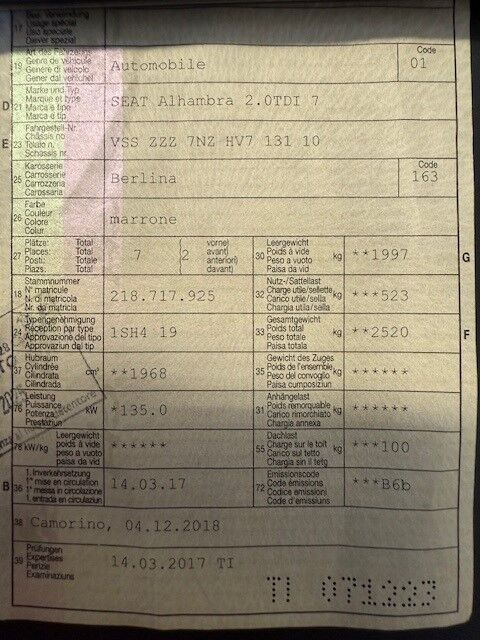 17
Bes. Verwendung
Usage spécial
Uso speciale
Diever spezial
19
Art des Fahrzeugs
Genre de véhicule
Genere di veicolo
Gener dal vehichel
Automobile
Code
01
D
21
Marke und Typ
Marque et type
Marca e tipo
Marca e tip
SEAT Alhambra 2.0TDI 7
E
23
Fahrgestell-Nr.
Châssis no
Telaio n.
Schassis nr.
VSS ZZZ 7NZ HV7 131 10
25
Karosserie
Carrosserie
Carrozzeria
Carossaria
Berlina
Code
163
26
Farbe
Couleur
Colore
Colur
marrone
27
Plätze: Total
Places: Total
Posti: Totale
Plazs: Total
7
(2
vorne)
avant)
anteriori)
davant)
30
Leergewicht
Poids à vide
Peso a vuoto
Paisa da vid
kg
**1997
G
18
Stammnummer
N° matricule
Nr. di matricola
Nr. da matricla
218.717.925
32
Nutz-/Sattellast
Charge utile/sellette
Carico utile/sella
Chargia utila/sella
kg
***523
24
Typengenehmigung
Réception par type
Approvazione del tipo
Approvaziun dal tip
1SH4 19
33
Gesamtgewicht
Poids total
Peso totale
Paisa totala
kg
**2520
F
37
Hubraum
Cylindrée
Cilindrata
Cilindrada
cm³
**1968
35
Gewicht des Zuges
Poids de l'ensemble
Peso del convoglio
Paisa cumposiziun
kg
******
76
Leistung
Puissance
Potenza
Prestaziun
kW
*135.0
31
Anhängelast
Poids remorquable
Carico rimorchiato
Chargia annexa
kg
******
78
kW/kg
Leergewicht
poids à vide
peso a vuoto
paisa da vid
******
55
Dachlast
Charge sur le toit
Carico sul tetto
Chargia sin il tetg
kg
***100
B
36
1. Inverkehrsetzung
1re mise en circulation
1a messa in circolazione
1. entrada en circulaziun
14.03.17
72
Emissionscode
Code émissions
Codice emissioni
Code d'emissiuns
***B6b
38
Camorino, 04.12.2018
39
Prüfungen
Expertises
Perizie
Examinaziuns
14.03.2017 TI
TI 071223